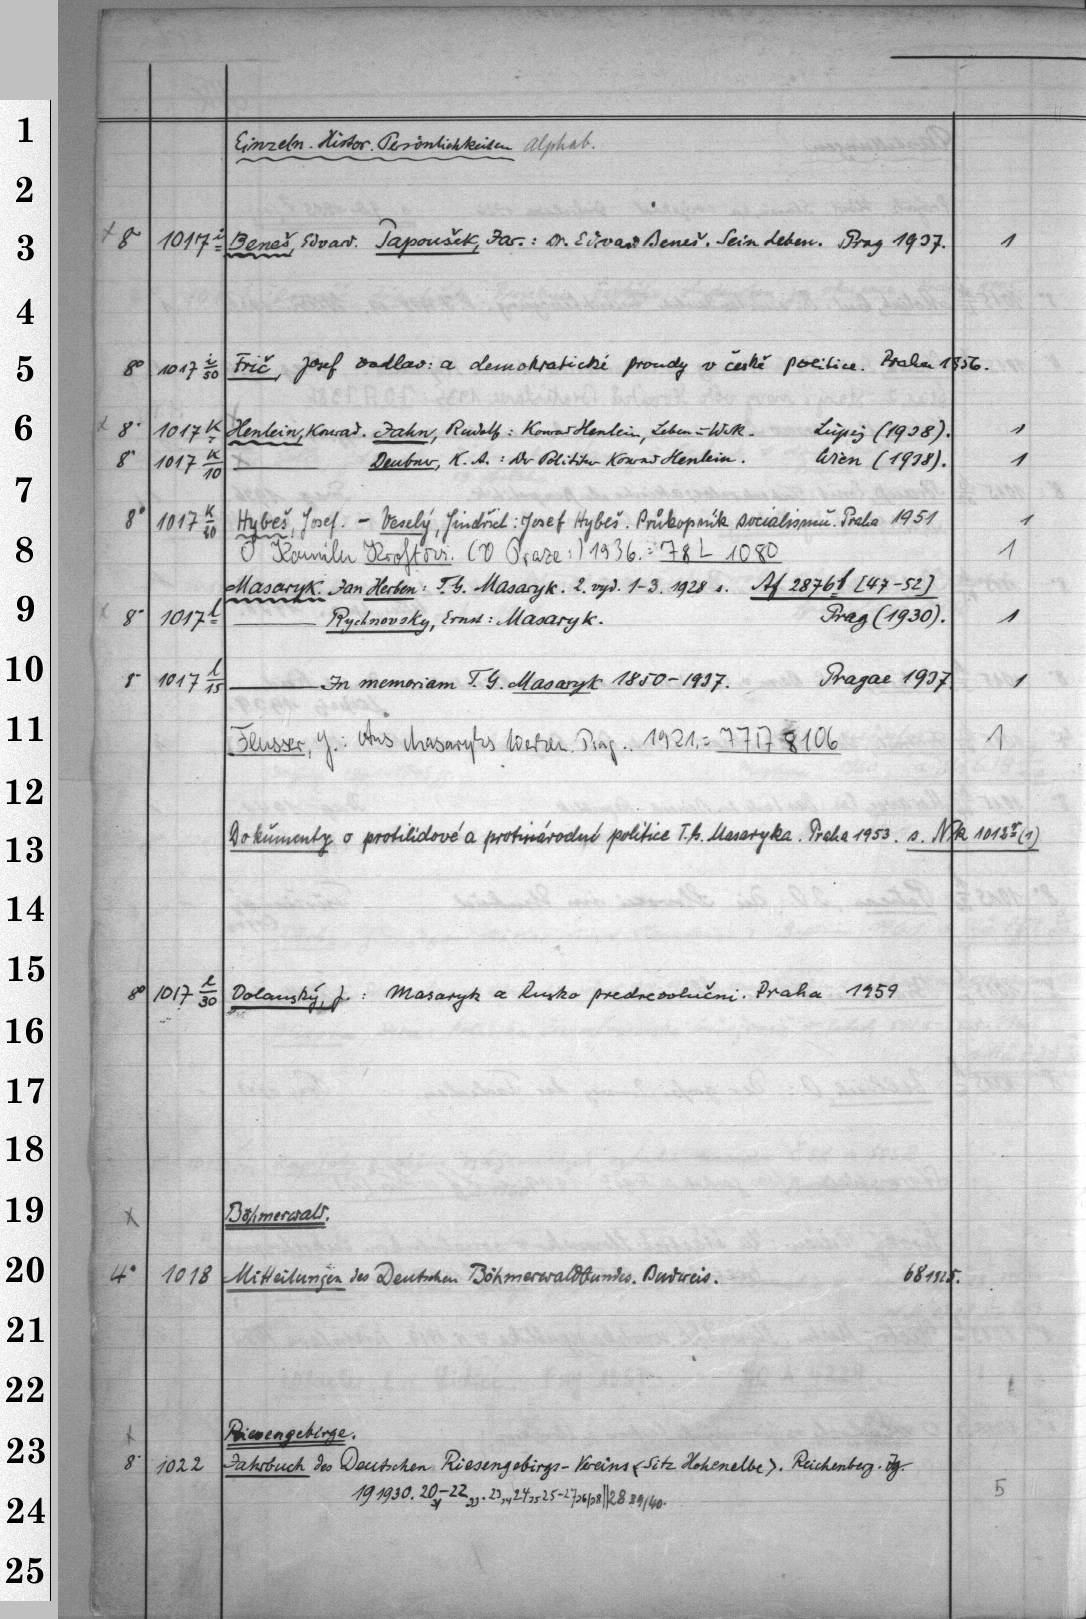 1
Einzeln. Histor. Persönlichkeiten alphab.
2
3 8° 1017 i Beneš, Edvard. Papoušek, Jar.: Dr. Edvard Beneš. Sein Leben. Prag 1937. 1
4
5 8° 1017 i/50 Frič, Josef Václav: a demokratické proudy v české politice. Praha 1956.
6 8° 1017 K Henlein, Konrad. Jahn, Rudolf: Konrad Henlein, Leben u. Werk. Leipzig (1938). 1
8° 1017 K/10 Deubner, K. A.: Der Politiker Konrad Henlein. Wien (1938). 1
7
8° 1017 K/40 Hybeš, Josef. – Veselý, Jindřich: Josef Hybeš. Průkopník socialismu. Praha 1951 1
8 O Kamilu Kroftovi. (V Praze:) 1936. = 78 L 1080 1
Masaryk. Jan Herben: T. G. Masaryk. 2. vyd. 1-3. 1928 s. Af 2876 f [47-52]
9 8° 1017 l Rychnovsky, Ernst: Masaryk. Prag (1930). 1
10 8° 1017 l/15 In memoriam T. G. Masaryk 1850-1937. Pragae 1937 1
11 Flusser, G.: Aus Masaryks Werken. Prag. 1921. = 77 D 8106 1
12
13 Dokumenty o protilidové a protinárodní politice T. G. Masaryka. Praha 1953. s. Nrk 1012 (1)
14
15 8° 1017 l/30 Dolanský, J.: Masaryk a Rusko predrevoluční. Praha 1959
16
17
18
19 Böhmerwald.
20 4° 1018 Mitteilungen des Deutschen Böhmerwaldbundes. Budweis. 68 1925.
21
22
Riesengebirge.
23 8° 1022 Jahrbuch des Deutschen Riesengebirgs-Vereins (Sitz Hohenelbe). Reichenberg. Jg.
24 19 1930. 20-22 5
25